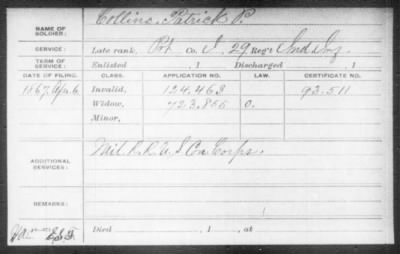 NAME OF SOLDIER: Collins, Patrick P.
SERVICE: Late rank, Pvt Co. I, 29 Reg't Ind Inf
TERM OF SERVICE: Enlisted , 1 Discharged , 1
DATE OF FILING. CLASS. APPLICATION NO. LAW. CERTIFICATE NO.
1867 Apr. 6 Invalid, 124.463 93.511
Widow, 723.856 O.
Minor,
ADDITIONAL SERVICES: Mil. R. R. U S Con Corps.
REMARKS:
Died , 1 , at